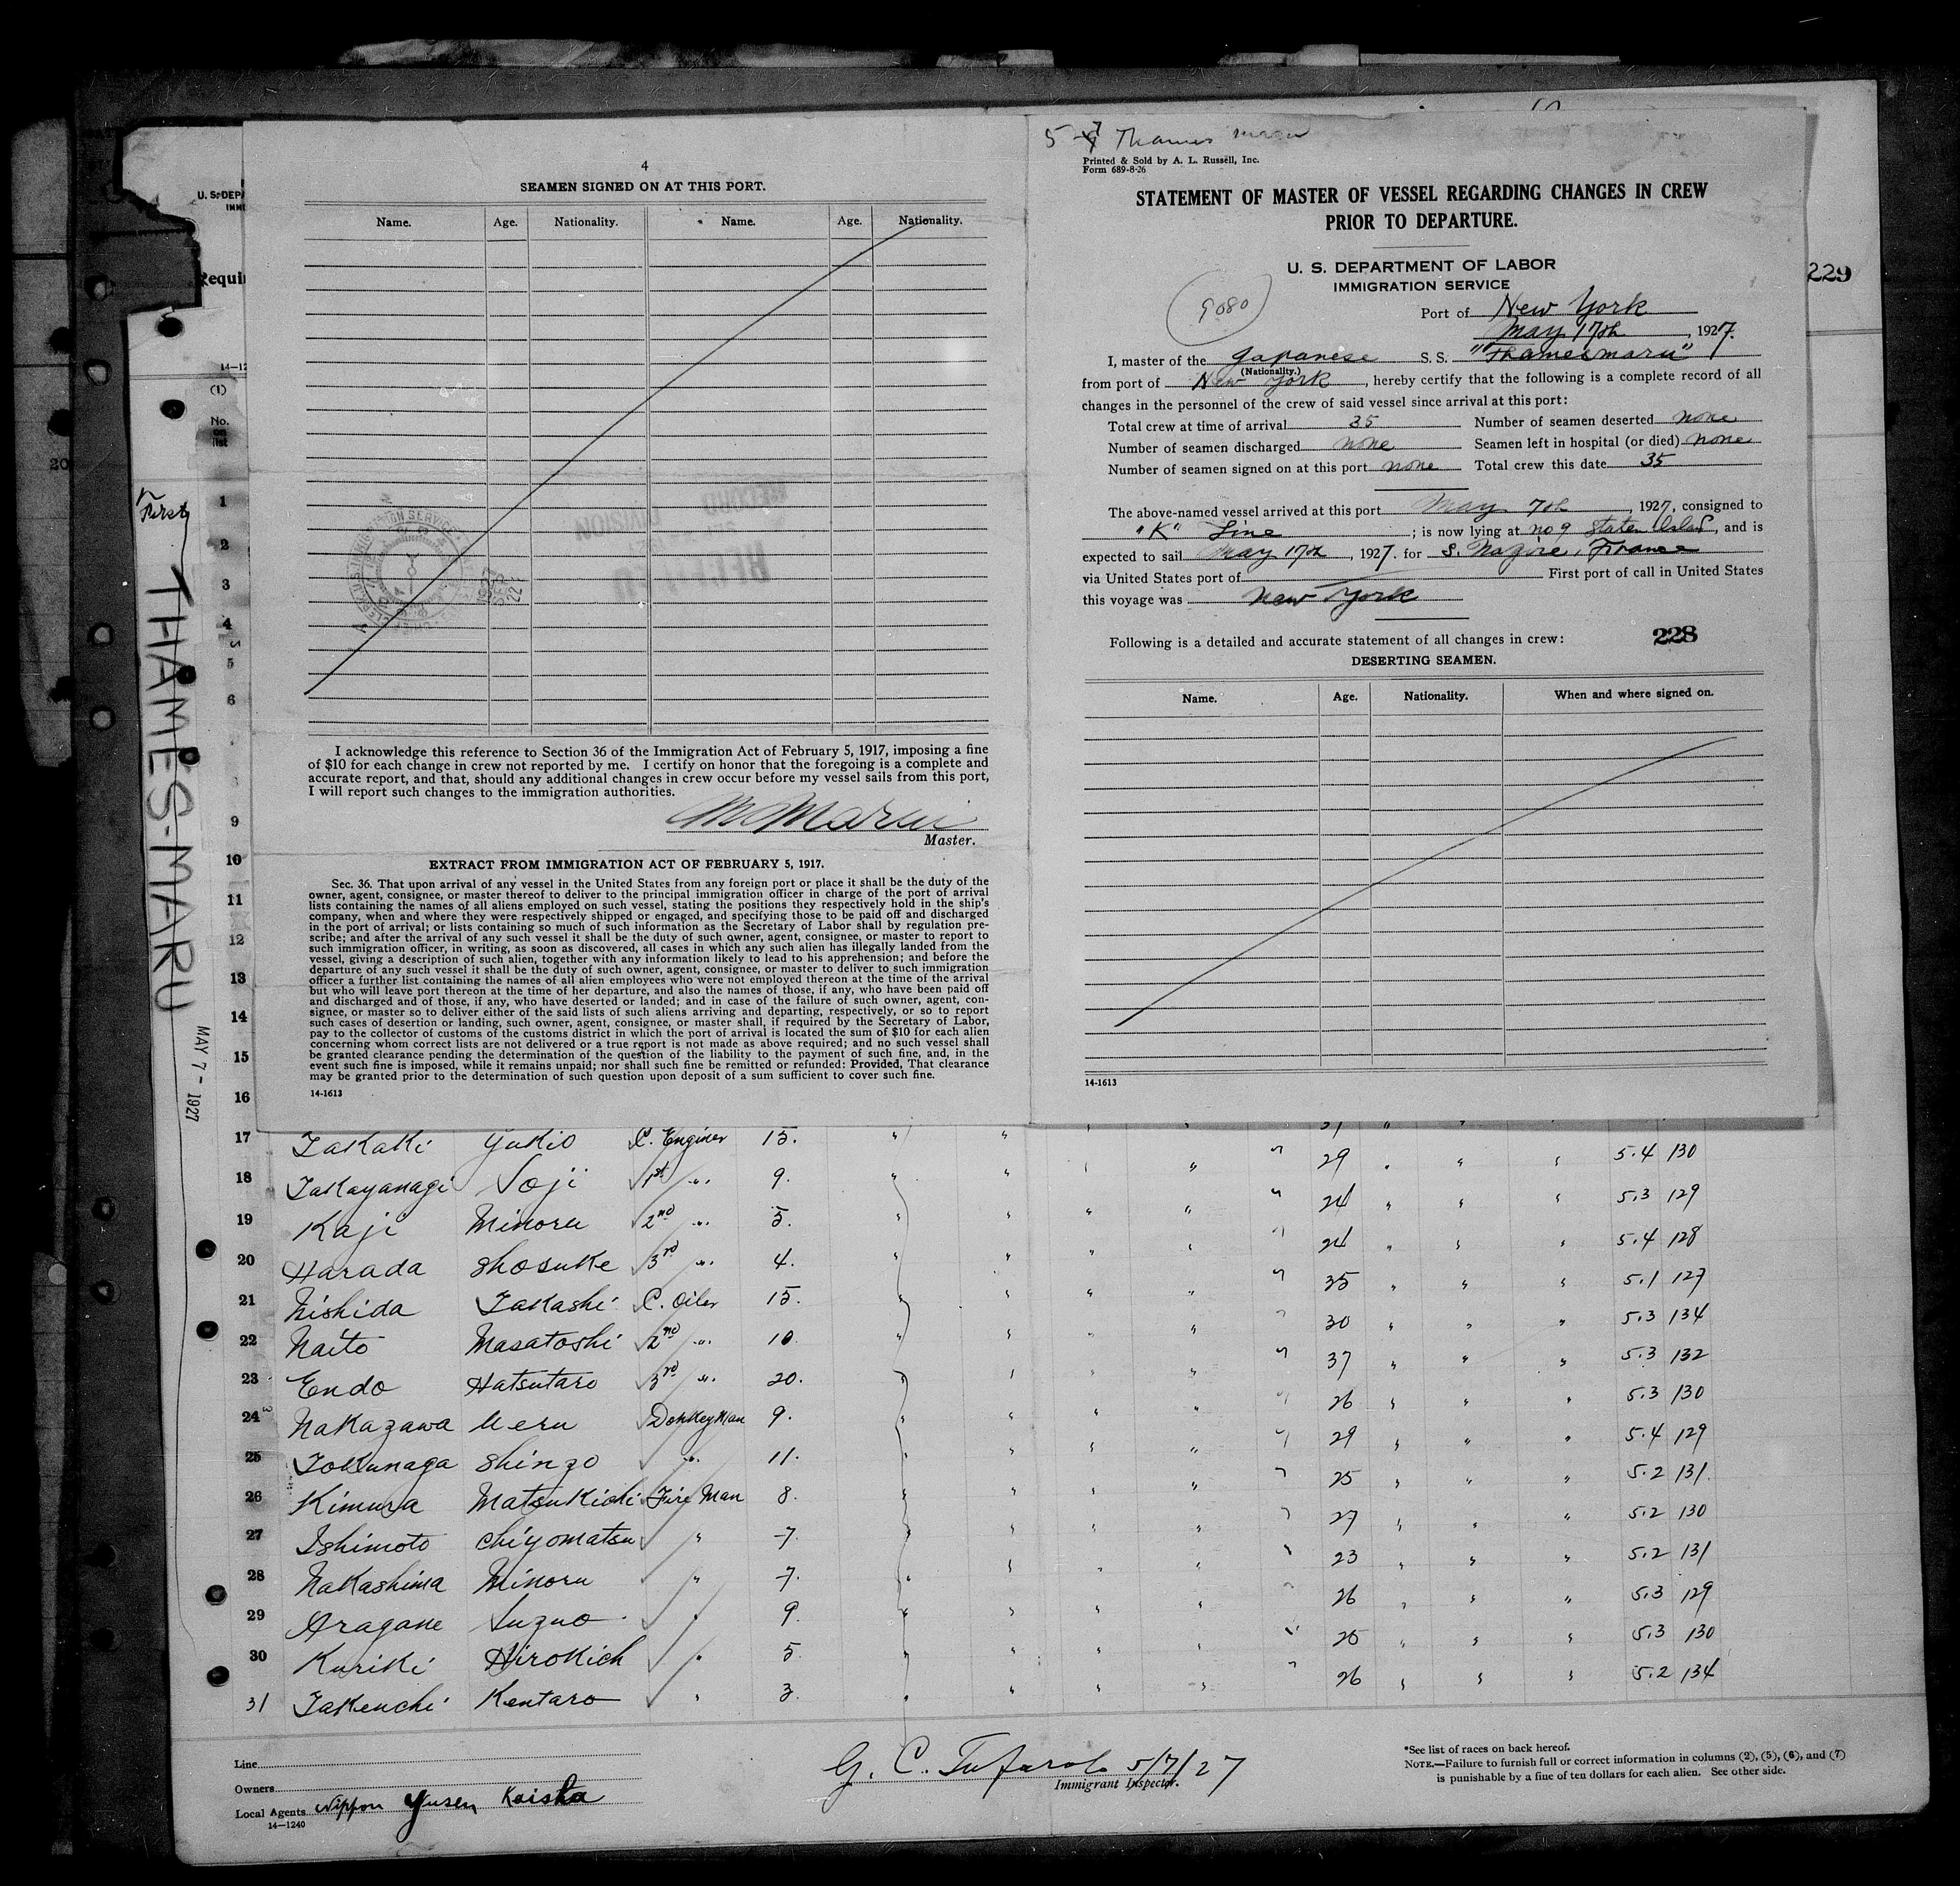 4
SEAMEN SIGNED ON AT THIS PORT.
Name. Age. Nationality. Name. Age. Nationality.
I acknowledge this reference to Section 36 of the Immigration Act of February 5, 1917, imposing a fine
of $10 for each change in crew not reported by me. I certify on honor that the foregoing is a complete and
accurate report, and that, should any additional changes in crew occur before my vessel sails from this port,
I will report such changes to the immigration authorities.
Master.
EXTRACT FROM IMMIGRATION ACT OF FEBRUARY 5, 1917.
Sec. 36. That upon arrival of any vessel in the United States from any foreign port or place it shall be the duty of the
owner, agent, consignee, or master thereof to deliver to the principal immigration officer in charge of the port of arrival
lists containing the names of all aliens employed on such vessel, stating the positions they respectively hold in the ship's
company, when and where they were respectively shipped or engaged, and specifying those to be paid off and discharged
in the port of arrival; or lists containing so much of such information as the Secretary of Labor shall by regulation pre-
scribe; and after the arrival of any such vessel it shall be the duty of such owner, agent, consignee, or master to report to
such immigration officer, in writing, as soon as discovered, all cases in which any such alien has illegally landed from the
vessel, giving a description of such alien, together with any information likely to lead to his apprehension; and before the
departure of any such vessel it shall be the duty of such owner, agent, consignee, or master to deliver to such immigration
officer a further list containing the names of all alien employees who were not employed thereon at the time of the arrival
but who will leave port thereon at the time of her departure, and also the names of those, if any, who have been paid off
and discharged and of those, if any, who have deserted or landed; and in case of the failure of such owner, agent, con-
signee, or master so to deliver either of the said lists of such aliens arriving and departing, respectively, or so to report
such cases of desertion or landing, such owner, agent, consignee, or master shall, if required by the Secretary of Labor,
pay to the collector of customs of the customs district in which the port of arrival is located the sum of $10 for each alien
concerning whom correct lists are not delivered or a true report is not made as above required; and no such vessel shall
be granted clearance pending the determination of the question of the liability to the payment of such fine, and, in the
event such fine is imposed, while it remains unpaid; nor shall such fine be remitted or refunded: Provided, That clearance
may be granted prior to the determination of such question upon deposit of a sum sufficient to cover such fine.
14-1613
5-7 Thames Maru
Printed & Sold by A. L. Russell, Inc.
Form 689-8-26
STATEMENT OF MASTER OF VESSEL REGARDING CHANGES IN CREW
PRIOR TO DEPARTURE.
U. S. DEPARTMENT OF LABOR
IMMIGRATION SERVICE
9080
Port of New York
May 17th, 1927.
I, master of the Japanese S. S. "Thamesmaru"
(Nationality.)
from port of New York, hereby certify that the following is a complete record of all
changes in the personnel of the crew of said vessel since arrival at this port:
Total crew at time of arrival 35 Number of seamen deserted none
Number of seamen discharged none Seamen left in hospital (or died) none
Number of seamen signed on at this port none Total crew this date 35
The above-named vessel arrived at this port May 7th, 1927, consigned to
"K" Line; is now lying at no 9 Staten Island, and is
expected to sail May 17th, 1927. for France
via United States port of First port of call in United States
this voyage was New York
Following is a detailed and accurate statement of all changes in crew: 228
DESERTING SEAMEN.
Name. Age. Nationality. When and where signed on.
14-1613
229
U. S. DEPA
IMMI
Requi
14-12
(1)
No.
on
list
First
THAMES-MARU
MAY 7 - 1927
1
2
3
4
5
6
9
10
11
12
13
14
15
16
17 Takaki Yukio C. Enginer 15. " "
18 Takayanagi Soji 1st " 9. " " 29 " 5.4 130
19 Kaji Minoru 2nd " 5. " " 24 " 5.3 129
20 Harada Shosuke 3rd " 4. " " 24 " 5.4 128
21 Nishida Takashi C. Oiler 15. " " 35 " 5.1 127
22 Naito Masatoshi 2nd " 10. " " 30 " 5.3 134
23 Endo Hatsutaro 3rd " 20. " " 37 " 5.3 132
24 Nakazawa Ueru Donkeyman 9. " " 26 " 5.3 130
25 Tokunaga Shinzo " 11. " " 29 " 5.4 129
26 Kimura Matsukichi Fire Man 8. " " 25 " 5.2 131
27 Ishimoto Chiyomatsu " 7. " " 27 " 5.2 130
28 Nakashima Minoru " 7. " " 23 " 5.2 131
29 Aragane Suzuo " 9. " " 26 " 5.3 129
30 Kuriki Hirokich " 5. " " 25 " 5.3 130
31 Takeuchi Kentaro " 3. " " 26 " 5.2 134
Line
Owners
Local Agents Nippon Yusen Kaisha
14-1240
G. C. 5/7/27
Immigrant Inspector.
*See list of races on back hereof.
NOTE.—Failure to furnish full or correct information in columns (2), (5), (6), and (7)
is punishable by a fine of ten dollars for each alien. See other side.